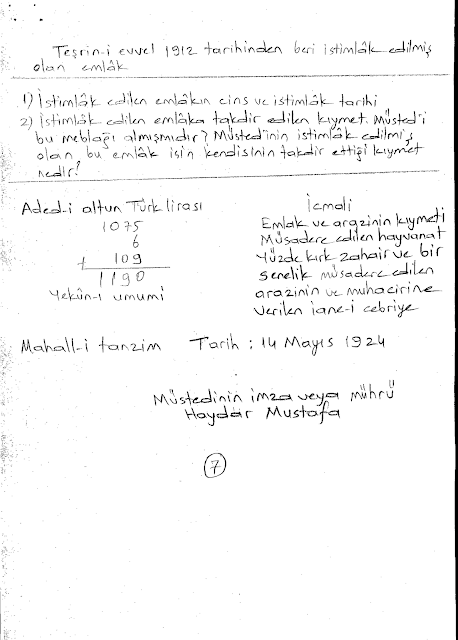 Teşrin-i evvel 1912 tarihinden beri istimlâk edilmiş
olan emlâk
1) İstimlâk edilen emlâkın cins ve istimlâk tarihi
2) İstimlâk edilen emlâka takdir edilen kıymet. Müsted'i
bu meblağı almışmıdır? Müstedinin istimlâk edilmiş
olan, bu emlâk için kendisinin takdir ettiği kıymet
nedir?
Aded-i altun Türk lirası
1075
6
+ 109
1190
Yekûn-i umumi
İcmali
Emlak ve arazinin kıymeti
Müsadere edilen hayvanat
Yüzde kırk zahair ve bir
senelik müsadere edilen
arazinin ve muhacirine
verilen iane-i cebriye
Mahall-i tanzim Tarih : 14 Mayıs 1924
Müstedinin imza veya mührü
Haydar Mustafa
7